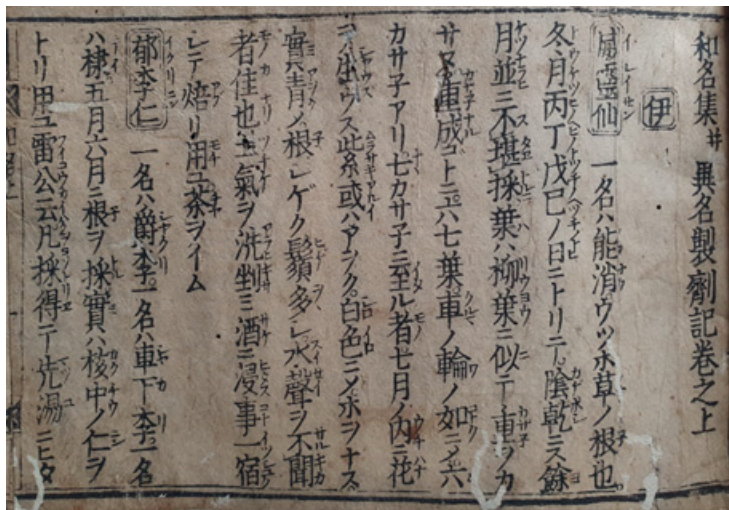 和名集并異名製劑記巻之上
伊
威霊仙 一名ハ能消ウツホ草ノ根也
冬月丙丁戊巳ノ日ニトリテ陰乾ニス餘
月並ニ不堪採葉ハ柳葉ニ似テ重ヲカ
サヌ車成コトニ六七葉車ノ輪ノ如ニメ六
カサ子アリ七カサ子ニ至ル者七月ノ内ニ花
ヲ出ウス紫或ハアンク白色ニメホヲナス
實青ノ根シゲク鬚多シ水聲ヲ不聞
者佳也土氣ヲ洗剉ミ酒ニ浸事一宿
シテ焙リ用ユ茶ヲイム
郁李仁 一名ハ爵李一名ハ車下李一名
ハ棣五月六月ニ根ヲ採實ハ核中ノ仁ヲ
トリ用ユ雷公云凡採得テ先湯ニヒタ